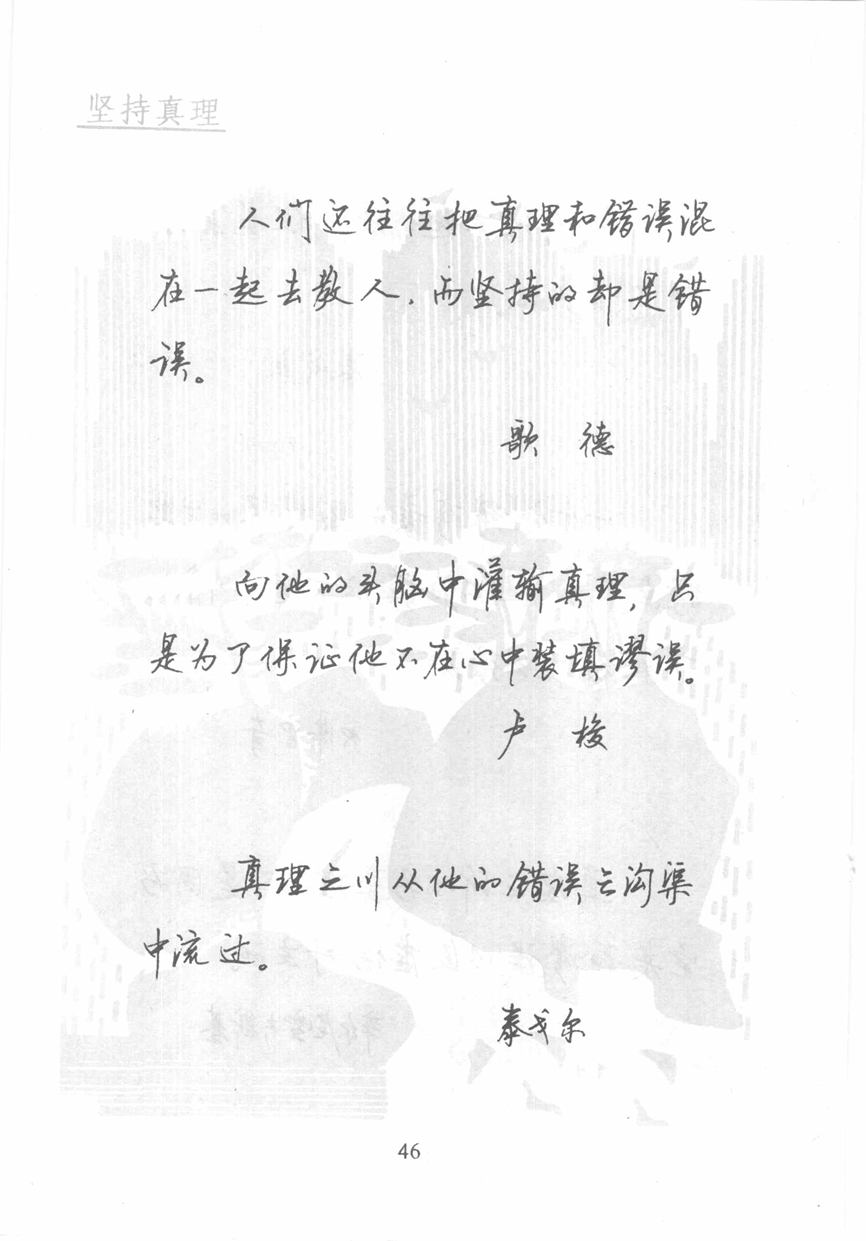 坚持真理
人们还往往把真理和错误混
在一起去教人，而坚持的却是错
误。
歌 德
向他的头脑中灌输真理，只
是为了保证他不在心中装填谬误。
卢 梭
真理之川从他的错误之沟渠
中流过。
泰戈尔
46